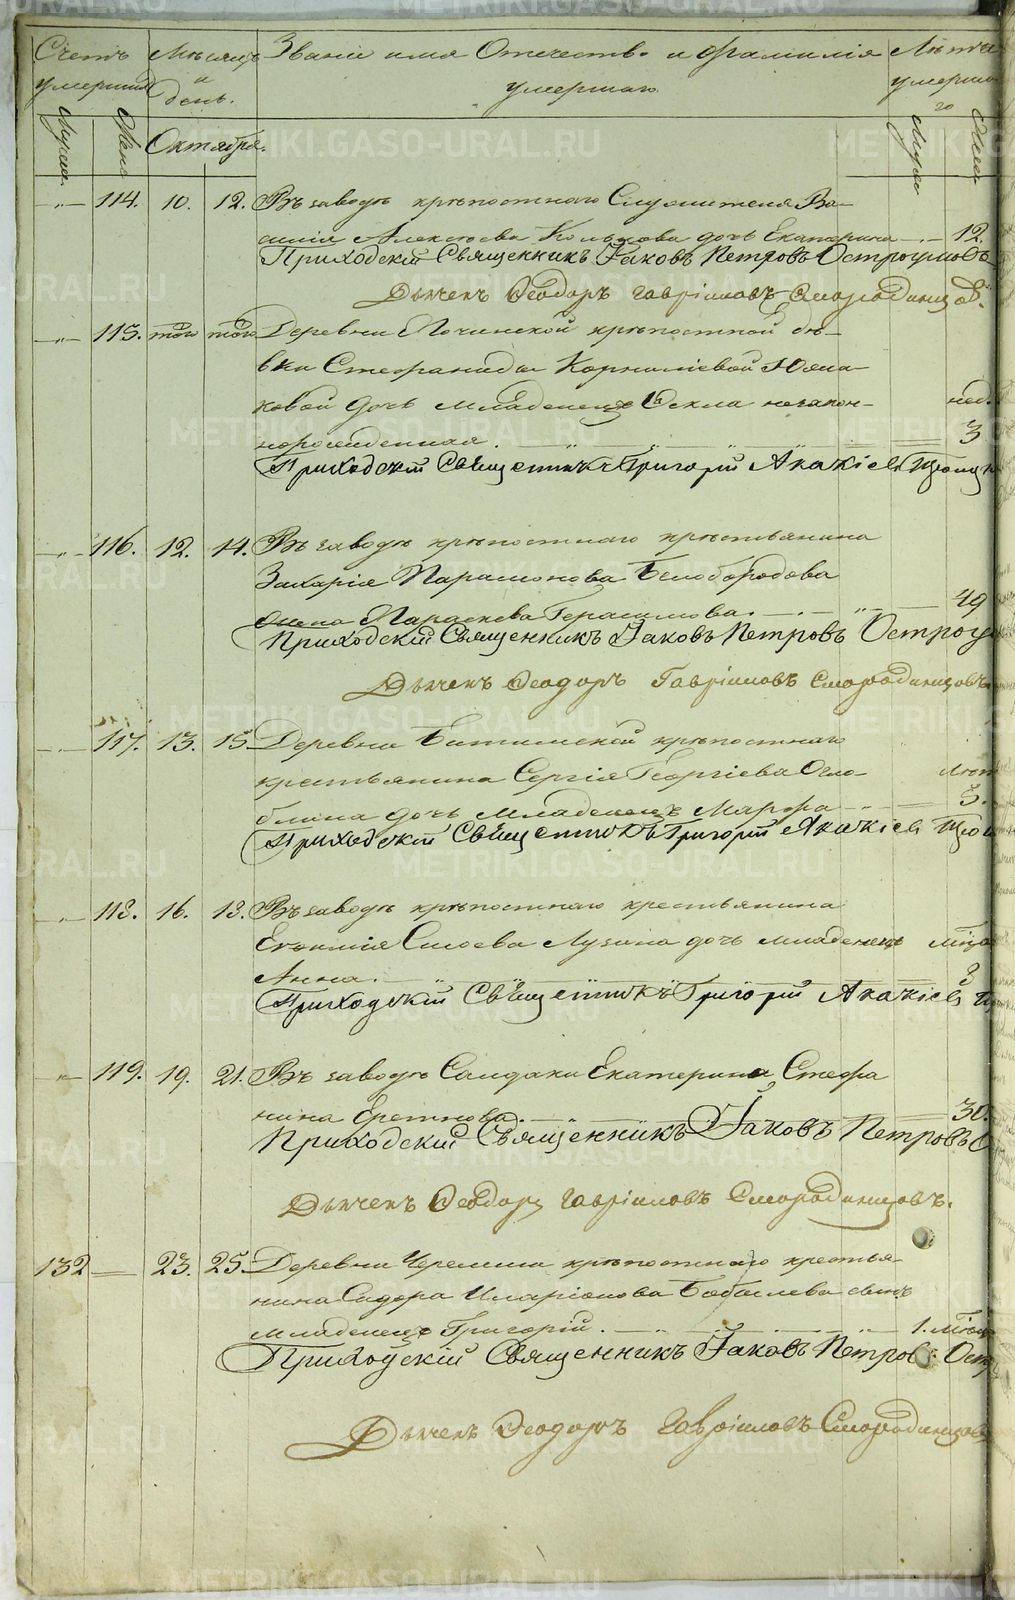 Счетъ Мѣсяцъ Званіе имя Отечество и фамилія Лѣта
умершихъ и день. умершаго умерша
го
Муж. Жен. Октября. Муж Жен
114. 10. 12. Въ заводѣ крѣпостнаго Служителя Ва-
силія Алексѣева дочь Екатерина 12.
Приходскій Священникъ Іаковъ Петровъ Остроумовъ
Дьячекъ Ѳеодоръ Гавріиловъ Смородинцовъ.
115. того того Деревни крѣпостной дѣ-
вки Стефаниды Корниліевой
ковой дочь младенецъ Ѳекла незакон- нед.
норожденная. 3
Приходскій Священникъ Григорій Акакіев
116. 12. 14. Въ заводѣ крѣпостнаго крѣстьянина
Захарія Парамонова Белобородова
жена Параскева Герасимова. 49
Приходскій Священникъ Іаковъ Петровъ Остроу
Дьячекъ Ѳеодоръ Гавріиловъ Смородинцовъ
117. 13. 15. Деревни Битимской крѣпостнаго
крестьянина Сергія Георгіева Огло- лѣт
блина дочь младенецъ Марфа 5.
Приходскій Священникъ Григорій Акакіев
118. 16. 18. Въ заводѣ крѣпостнаго крестьянина
Евфимія Сысоева Лузина дочь младенецъ мѣся
Анна.
Приходскій Священникъ Григорій Акакіев
119. 19. 21. Въ заводѣ Солдатки Екатерина Стефа
нина 30.
Приходскій Священникъ Іаковъ Петровъ О
Дьячекъ Ѳеодоръ Гавріиловъ Смородинцовъ.
132 23. 25. Деревни Черемши крѣпостнаго крестья
нина Сидора Иларіонова сынъ
младенецъ Григорій. 1. мѣся
Приходскій Священникъ Іаковъ Петров Ост
Дьячекъ Ѳеодоръ Гавріиловъ Смородинцовъ
METRIKI.GASO-URAL.RU